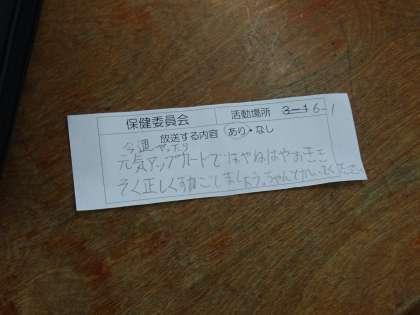 保健委員会 活動場所 3-1 6-1
放送する内容 あり・なし
今週
元気アップカートで はやねはやおきき
そく正しくすごしましょう。ちゃんと